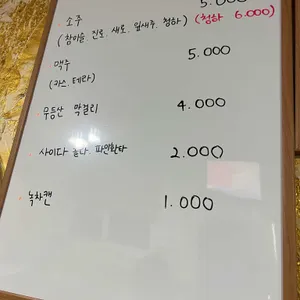 소주 5.000
(참이슬, 진로, 새로, 잎새주, 청하) (청하 6.000)
맥주 5.000
(카스, 테라)
무등산 막걸리 4.000
사이다 콜라. 파인환타 2.000
녹차캔 1.000